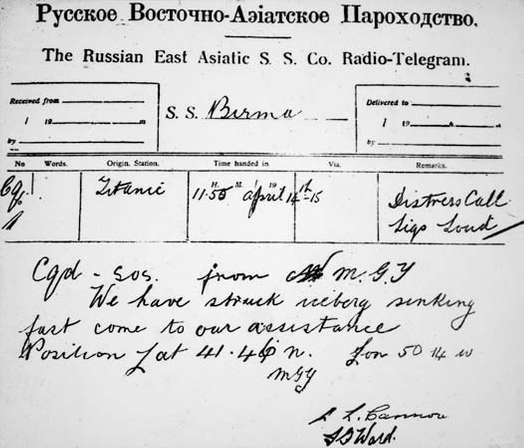 Русское Восточно-Азіатское Пароходство.
The Russian East Asiatic S. S. Co. Radio-Telegram.
Received from
S. S. Birma
Delivered to
1 19 m
1 19 m
by
by
No Words. Origin. Station. Time handed in Via. Remarks.
H. M. 19
Cqd Titanic 11.50 april 14th-15 Distress Call
1 Sigs Loud
Cqd - sos. from M.G.Y
We have struck iceberg sinking
fast come to our assistance
Position Lat 41.46 n. Lon 50 14 w
MGY
L. Cannon
Ward.